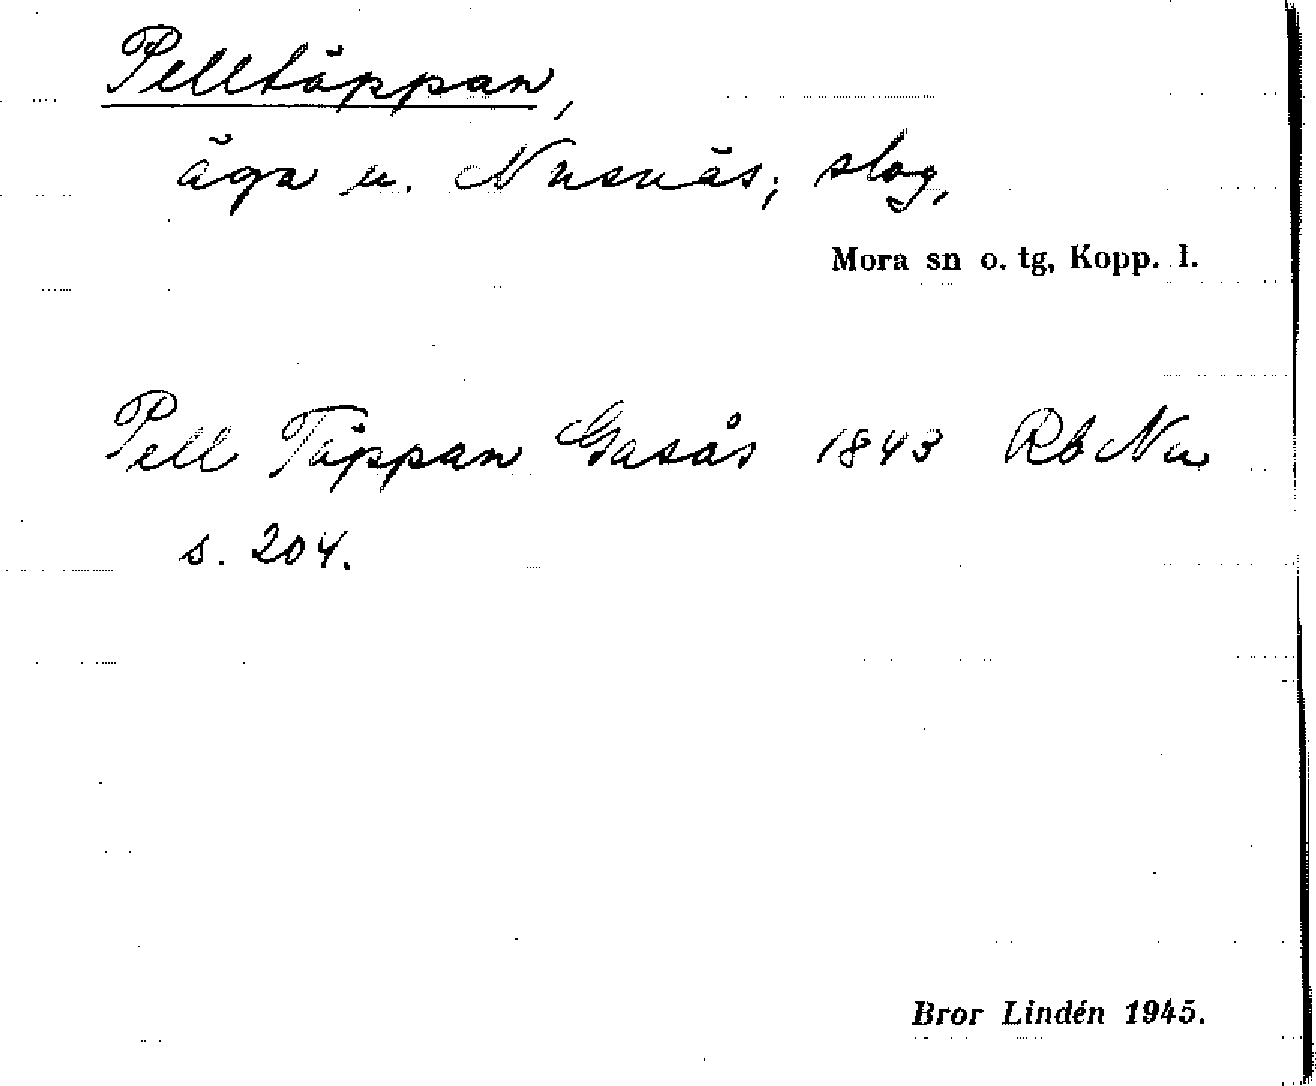 Pelltäppan,
äga u. Nusnäs; slog,
Mora sn o. tg, Kopp. l.
Pell Täppan Gasås 1843 Rb Nu
s. 204.
Bror Lindén 1945.